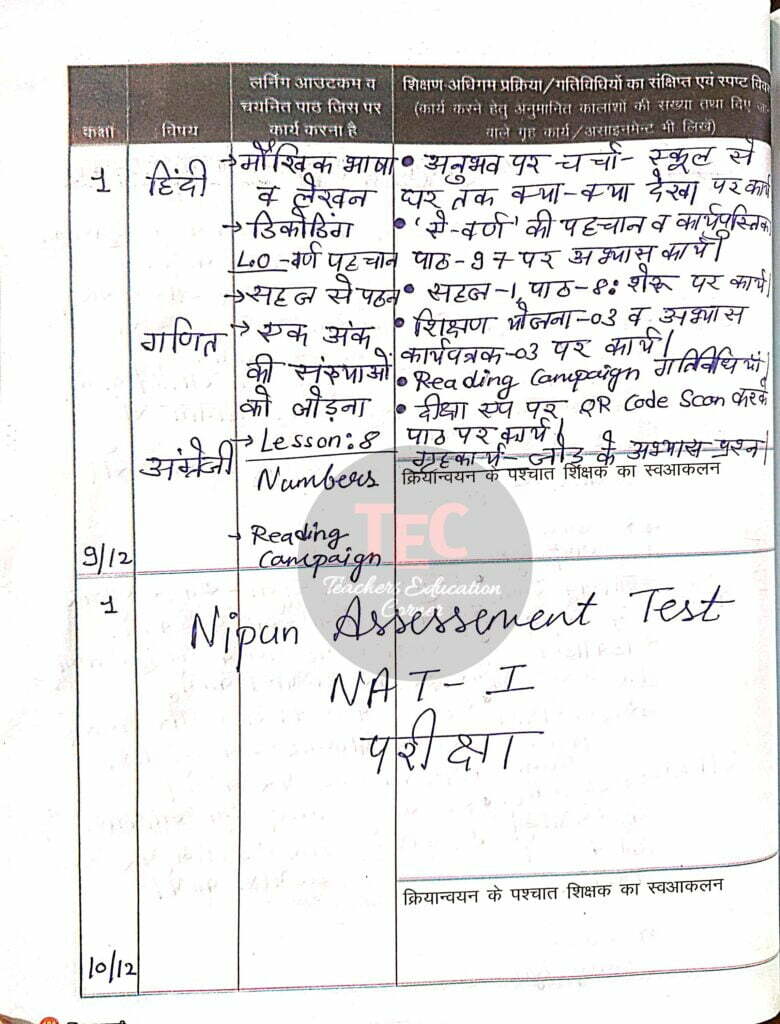 कक्षा विषय लर्निंग आउटकम व चयनित पाठ जिस पर कार्य करना है
शिक्षण अधिगम प्रक्रिया/गतिविधियों का संक्षिप्त एवं स्पष्ट
(कार्य करने हेतु अनुमानित कालांशों की संख्या तथा दिए
वाले गृह कार्य/असाइनमेन्ट भी लिखें)
1 हिंदी
→ मौखिक भाषा
व लेखन
→ डिकोडिंग
L.O - वर्ण पहचान
→ सहज से पठन
• अनुभव पर चर्चा- स्कूल से
घर तक क्या-क्या देखा पर कार्य
की पहचान व कार्यपुस्तिका
पाठ-97 पर अभ्यास कार्य।
• सहज-1, पाठ-8: शेरू पर कार्य।
गणित
→ एक अंक
की संख्याओं
को जोड़ना
• शिक्षण योजना-03 व अभ्यास
कार्यपत्रक-03 पर कार्य।
अंग्रेजी
→ Lesson: 8
Numbers
→ Reading
Campaign
• Reading Campaign गतिविधियाँ
• दीक्षा एप पर QR Code Scan करके
पाठ पर कार्य।
गृहकार्य- जोड़ के अभ्यास प्रश्न।
क्रियान्वयन के पश्चात शिक्षक का स्वआकलन
9/12
TEC
Teachers Education
Corner
1
Nipun Assessement Test
NAT- I
परीक्षा
क्रियान्वयन के पश्चात शिक्षक का स्वआकलन
10/12